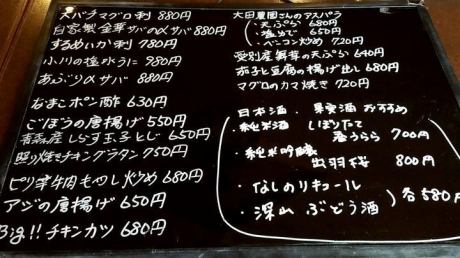 大バチマグロ刺 880円
自家製金華サバの〆サバ 880円
するめいか刺 780円
小川の塩水うに 980円
あぶり〆サバ 880円
なまこポン酢 630円
ごぼうの唐揚げ 550円
青森産しらす玉子とじ 650円
照り焼きチキングラタン 750円
ピリ辛牛肉もやし炒め 680円
アジの唐揚げ 650円
Big!! チキンカツ 680円
大田農園さんのアスパラ
・天ぷら 680円
・塩ゆで 650円
・ベーコン炒め 720円
愛別産舞茸の天ぷら 640円
茄子と豆腐の揚げ出し 680円
マグロのカマ焼き 720円
日本酒・果実酒 おすすめ
・純米酒 しぼりたて
春うらら 700円
・純米吟醸
出羽桜 800円
・なしのリキュール
・深山 ぶどう酒
各580円